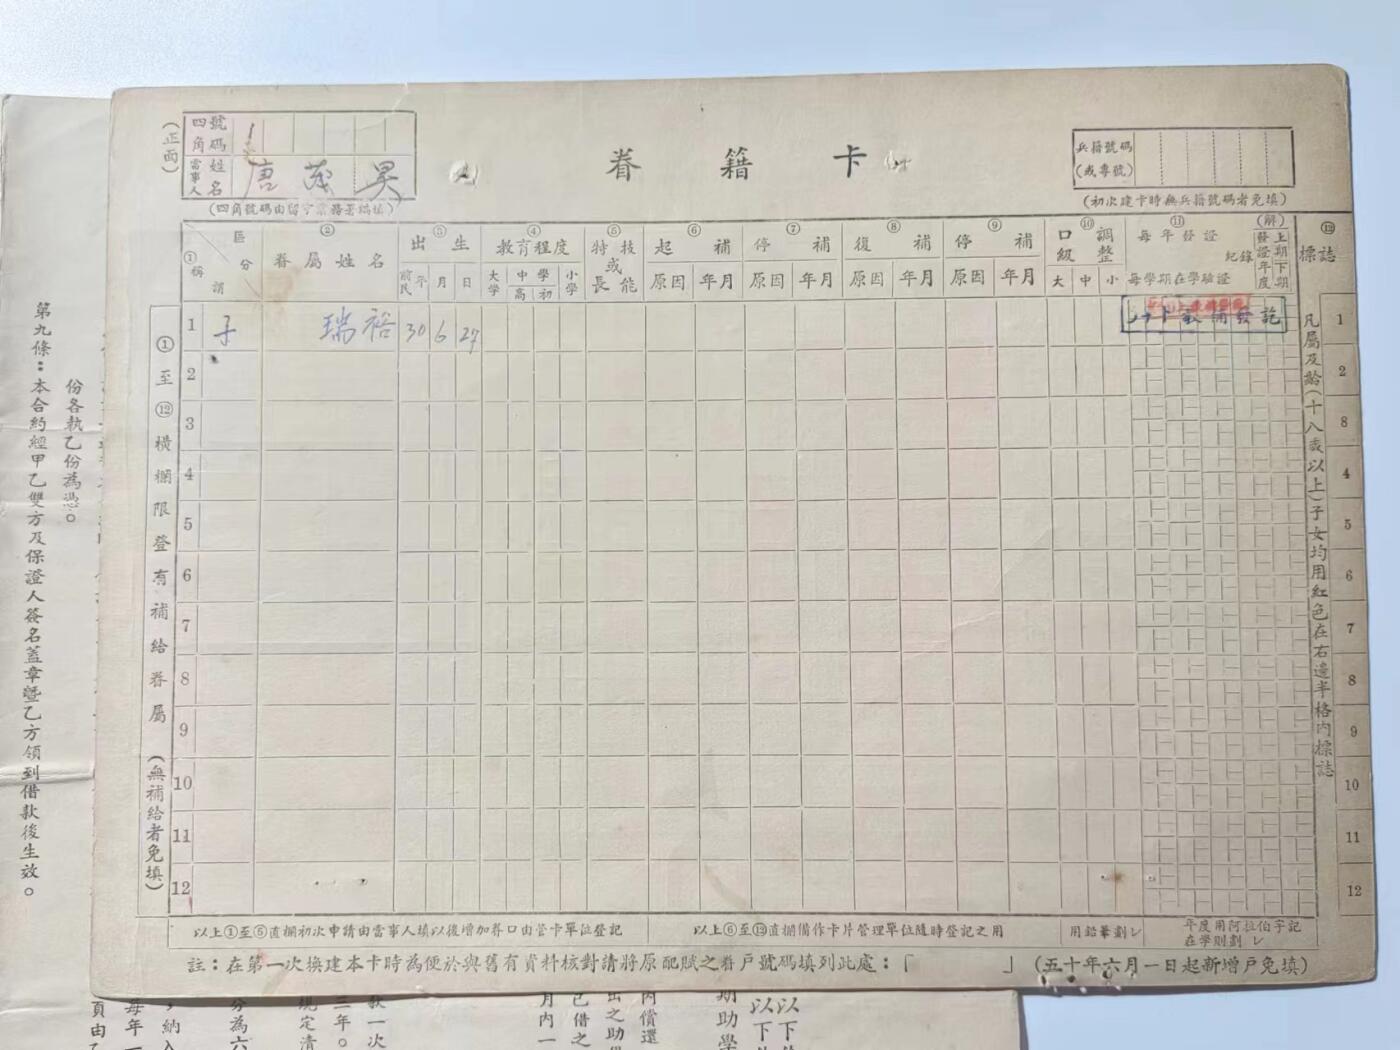 (正面)
四角號碼
當事人姓名 唐茂昊
(四角號碼由留守業務署編填)
眷籍卡
兵籍號碼
(或專號)
(初次建卡時無兵籍號碼者免填)
①稱謂 區分
②眷屬姓名
③出生
民前 年 月 日
④教育程度
大學 中學 高 初 小學
⑤特技或長能
⑥起補
原因 年月
⑦停補
原因 年月
⑧復補
原因 年月
⑨停補
原因 年月
⑩口級調整
大 中 小
⑪每年發證紀錄
每學期在學驗證
(解)
發證年度
上期下期
⑫標誌
①至⑫橫欄限登有補給眷屬(無補給者免填)
1 子 瑞裕 30 6 27 1
2 2
3 8
4 4
5 5
6 6
7 7
8 8
9 9
10 10
11 11
12 12
凡屬及齡(十八歲以上)子女均用紅色在右邊半格內標誌
以上①至⑤直欄初次申請由當事人填以後增加眷口由管卡單位登記
以上⑥至⑫直欄備作卡片管理單位隨時登記之用
用鉛筆劃✓
年度用阿拉伯字記
在學則劃✓
註:在第一次換建本卡時為便於與舊有資料核對請將原配賦之眷戶號碼填列此處:「 」(五十年六月一日起新增戶免填)
份各執乙份為憑。
第九條:本合約經甲乙雙方及保證人簽名蓋章暨乙方領到借款後生效。